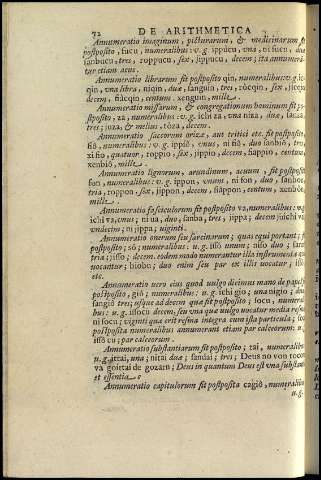 72 DE ARITHMETICA
Annumeratio imaginum, picturarum, & medicinarum fit
postposito, fucu, numeralibus: v.g. ippucu, vna, ni fucu, duæ
sanbucu, tres, roppucu, sex, jippucu, decem; ita annumeran
tur etiam aues.
Annumeratio librarum fit postposito qin, numeralibus: v.g. ic-
qin, vna libra, niqin, duæ, sanguin, tres, rócqin, sex, jicqin,
decem, fiácqin, centum, xenguin, mille.
Annumeratio missarum, & congregationum hominum fit post-
posito, za, numeralibus: v.g. ichi za, vna niza, duæ, sanza,
tres; joza, & melius, tòza, decem.
Annumeratio saccorum orizæ, aut tritici etc. fit postposito
fiô, numeralibus: v.g. ippiô, vnus, ni fiô, duo sanbiô, tres,
xi fio, quatuor, roppio, sex, jippio, decem, fiappio, centum,
xenbiò, mille.
Annumeratio lignorum, arundinum, acuum, fit postposito
fon, numeralibus: v.g. ippon, vnum, ni fon, duo, sanbon,
tres, roppon, sex, jippon, decem, fiappon, centum, xenbon,
mille.
Annumeratio fasciculorum fit postposito va, numeralibus: v.g.
ichi va, vnus, ni ua, duo, sanba, tres, jippa; decem juichi va,
vndecim; ni jippa; uiginti.
Annumeratio onerum seu sarcinarum; quas equi portant; fit
postposito; só; numeralibus; u.g. issò unum; nisò duo; san
tria; jisso; decem. eodem modo numerantur illa instrumenta quæ
uocantur; biobu; duo enim seu par ex illis uocatur; isso
etc.
Annumeratio uero eius quod uulgo dicimus mano de papel
postposito, giô; numeralibus: u.g. ichi gio; una nigio; duæ
sangiô tres; usque ad decem quæ fit postposito; socu, numera
bus: u.g. issocu decem, seu vna quæ uulgo uocatur media resma
ni socu; viginti quæ erit resma integra cum ista particula; socu
postposita numeralibus annumerant etiam par calceorum: u.g.
isso cu; par calceorum.
Annumeratio substantiarum fit postposito; tai, numeralibus
u.g. ittai, una; nitai duæ; sandai; tres; Deus no von tocoro
va goittai de gozaru; Deus in quantum Deus est vna substantia
et essentia.
Annumeratio capitulorum fit postposita cagiò, numeralibus
u.g.